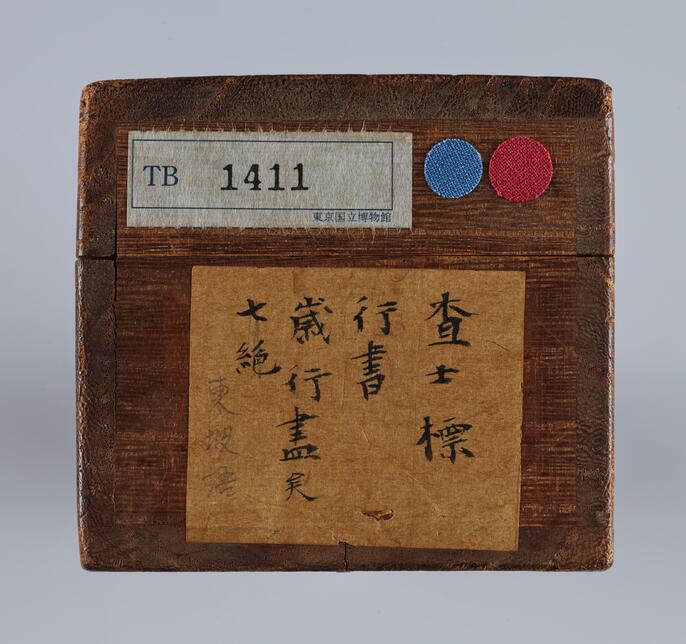 TB 1411
東京国立博物館
査士標
行書
歳行盡矣
七絶
東坡語